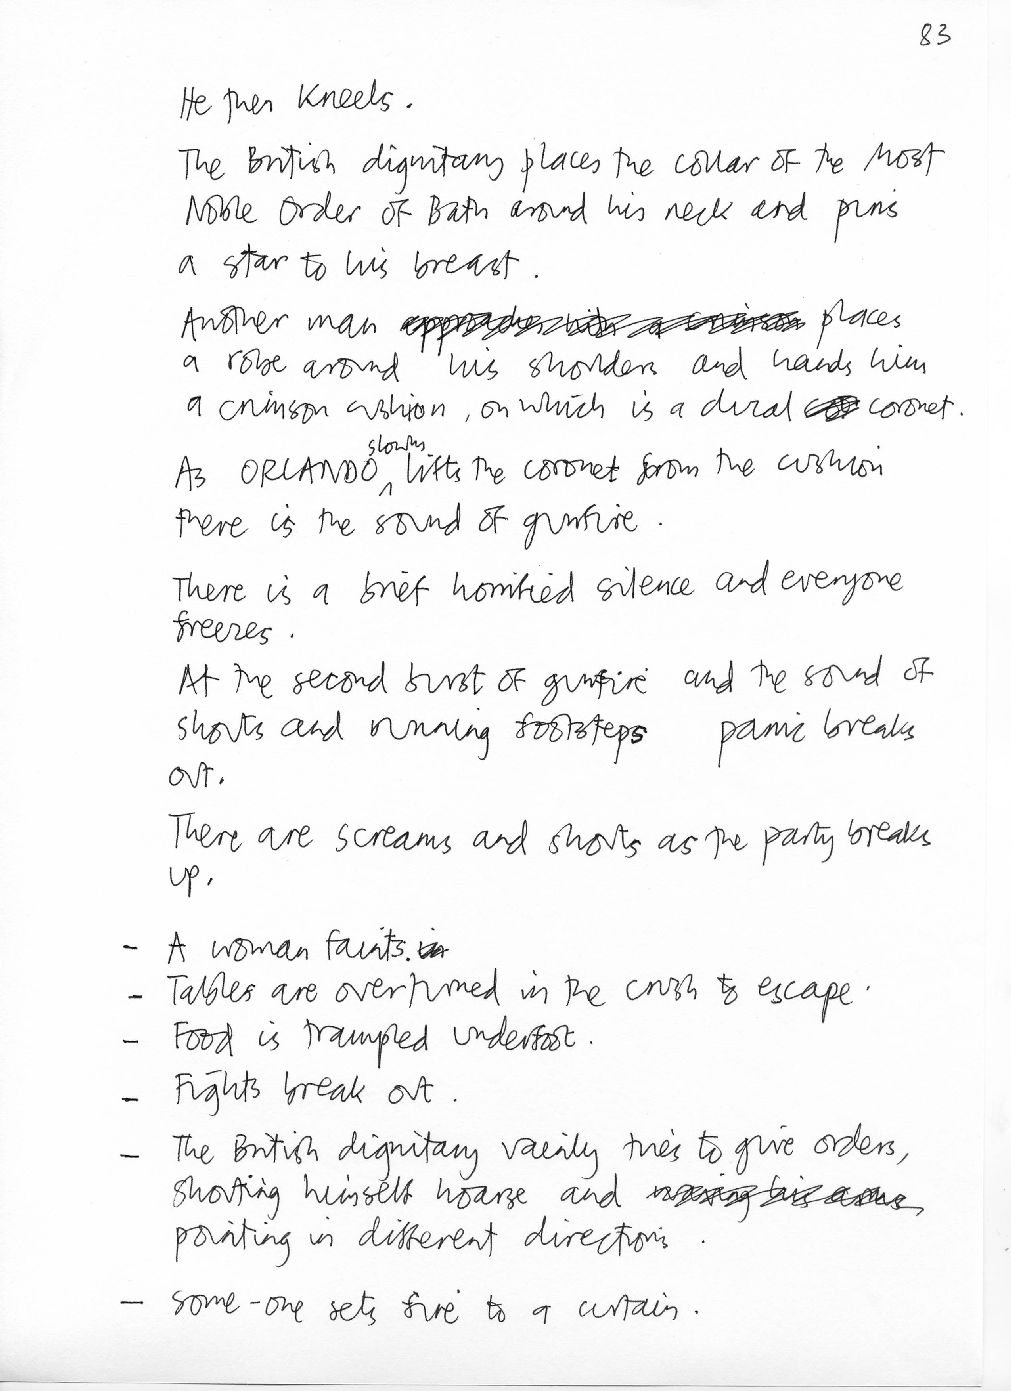 83
He then kneels.
The British dignitary places the collar of the Most
Noble Order of Bath around his neck and pins
a star to his breast.
Another man approaches with a crimson places
a robe around his shoulders and hands him
a crimson cushion, on which is a ducal coronet.
slowly
As ORLANDO lifts the coronet from the cushion
there is the sound of gunfire.
There is a brief horrified silence and everyone
freezes.
At the second burst of gunfire and the sound of
shouts and running footsteps panic breaks
out.
There are screams and shouts as the party breaks
up.
- A woman faints. in
- Tables are overturned in the crush to escape.
- Food is trampled underfoot.
- Fights break out.
- The British dignitary vainly tries to give orders,
shouting himself hoarse and waving his arms,
pointing in different directions.
- Some-one sets fire to a curtain.